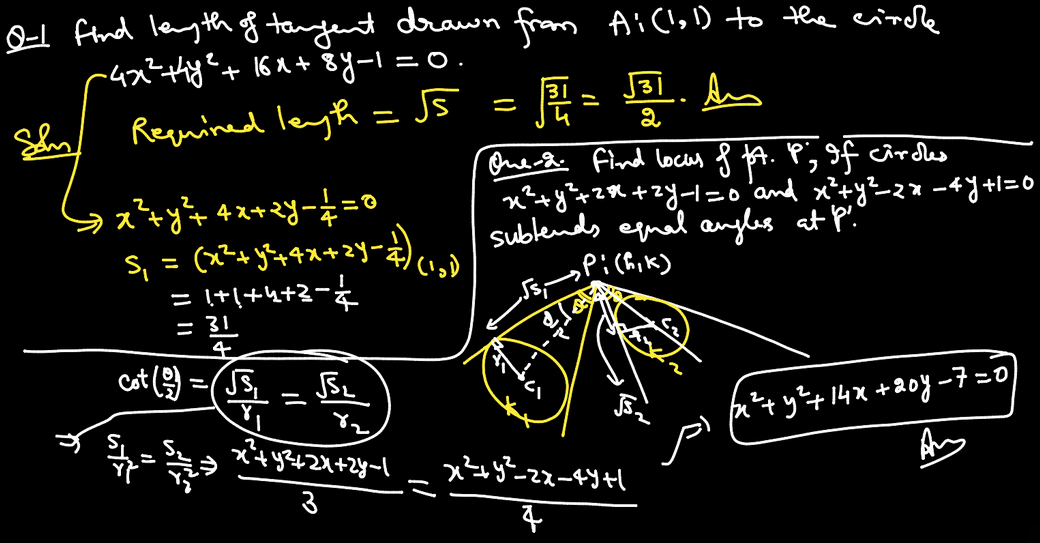 Q-1 Find length of tangent drawn from A:(1,1) to the circle
4x²+4y²+16x+8y-1=0.
Soln Required length = √S = √(31/4) = √31/2. Ans
x²+y²+4x+2y-1/4=0
S₁ = (x²+y²+4x+2y-1/4)(1,1)
= 1+1+4+2-1/4
= 31/4
Que-2. Find locus of pt. 'P', If circles
x²+y²+2x+2y-1=0 and x²+y²-2x-4y+1=0
subtends equal angles at 'P'.
P:(h,k)
√S₁
θ/2
r₁
C₁
C₂
r₂
√S₂
cot(θ/2) = √S₁/r₁ = √S₂/r₂
⇒ S₁/r₁² = S₂/r₂² ⇒ (x²+y²+2x+2y-1)/3 = (x²+y²-2x-4y+1)/4
⇒ x²+y²+14x+20y-7=0
Ans